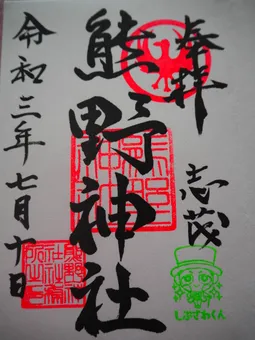 奉拝
志茂
熊野神社
令和三年七月十日
しぶさわくん